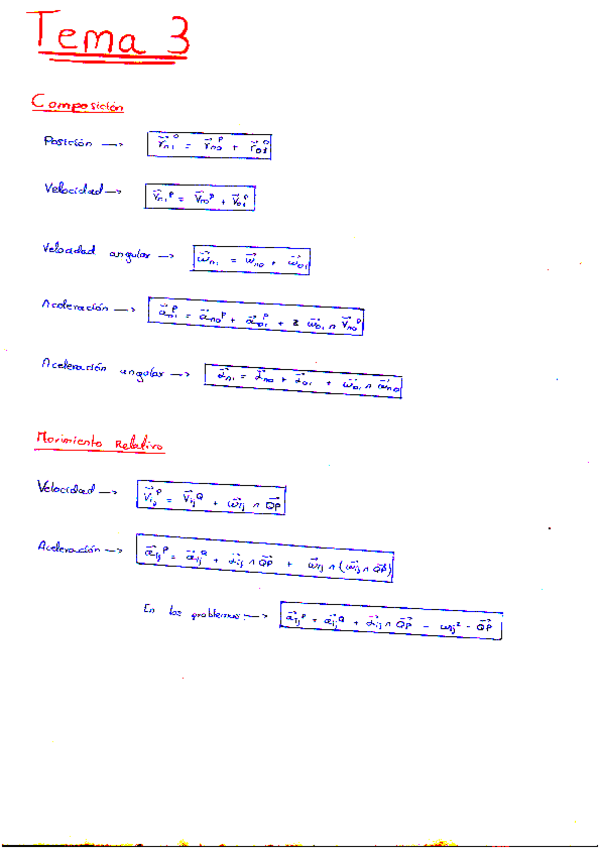 Tema 3
Composición
Posición → r⃗ₙᵢ⁰ = r⃗ₙ₀ᴾ + r⃗₀₁⁰
Velocidad → v⃗ₙᵢᴾ = v⃗ₙ₀ᴾ + v⃗₀ᵢᴾ
Velocidad angular → ω⃗ₙᵢ = ω⃗ₙ₀ + ω⃗₀ᵢ
Aceleración → a⃗ₙᵢᴾ = a⃗ₙ₀ᴾ + a⃗₀ᵢᴾ + 2 ω⃗₀ᵢ ∧ v⃗ₙ₀ᴾ
Aceleración angular → α⃗ₙᵢ = α⃗ₙ₀ + α⃗₀ᵢ + ω⃗₀ᵢ ∧ ω⃗ₙ₀
Movimiento Relativo
Velocidad → v⃗ᵢⱼᴾ = v⃗ᵢⱼ^Q + ω⃗ᵢⱼ ∧ QP⃗
Aceleración → a⃗ᵢⱼᴾ = a⃗ᵢⱼ^Q + α⃗ᵢⱼ ∧ QP⃗ + ω⃗ᵢⱼ ∧ (ω⃗ᵢⱼ ∧ QP⃗)
En los problemas: → a⃗ᵢⱼᴾ = a⃗ᵢⱼ^Q + α⃗ᵢⱼ ∧ QP⃗ - ωᵢⱼ² · QP⃗